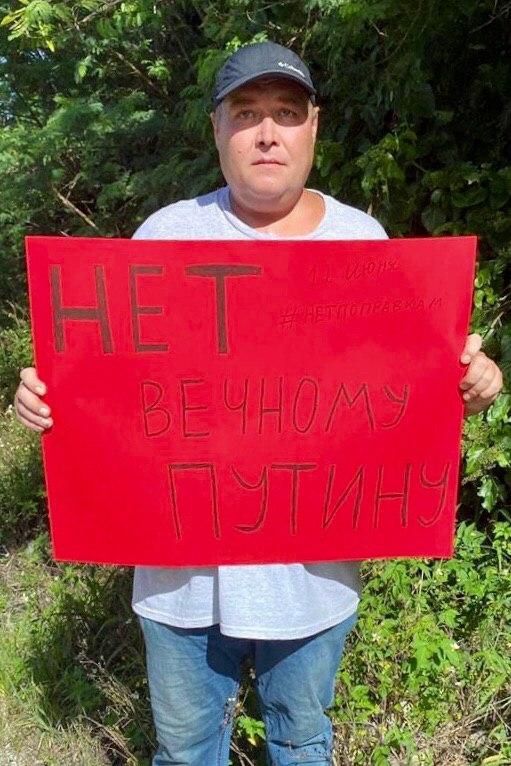 Columbia
НЕТ
12 июня
#НЕТПОПРАВКАМ
ВЕЧНОМУ
ПУТИНУ